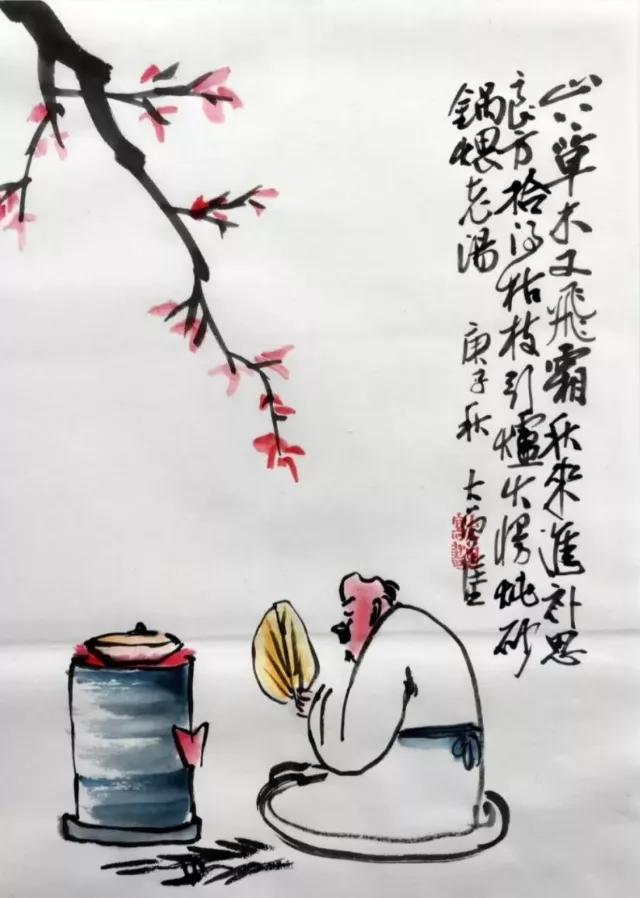 草木又飛霜秋來進补思
良方拾得枯枝引爐火慢炖砂
鍋煨老湯 庚子秋